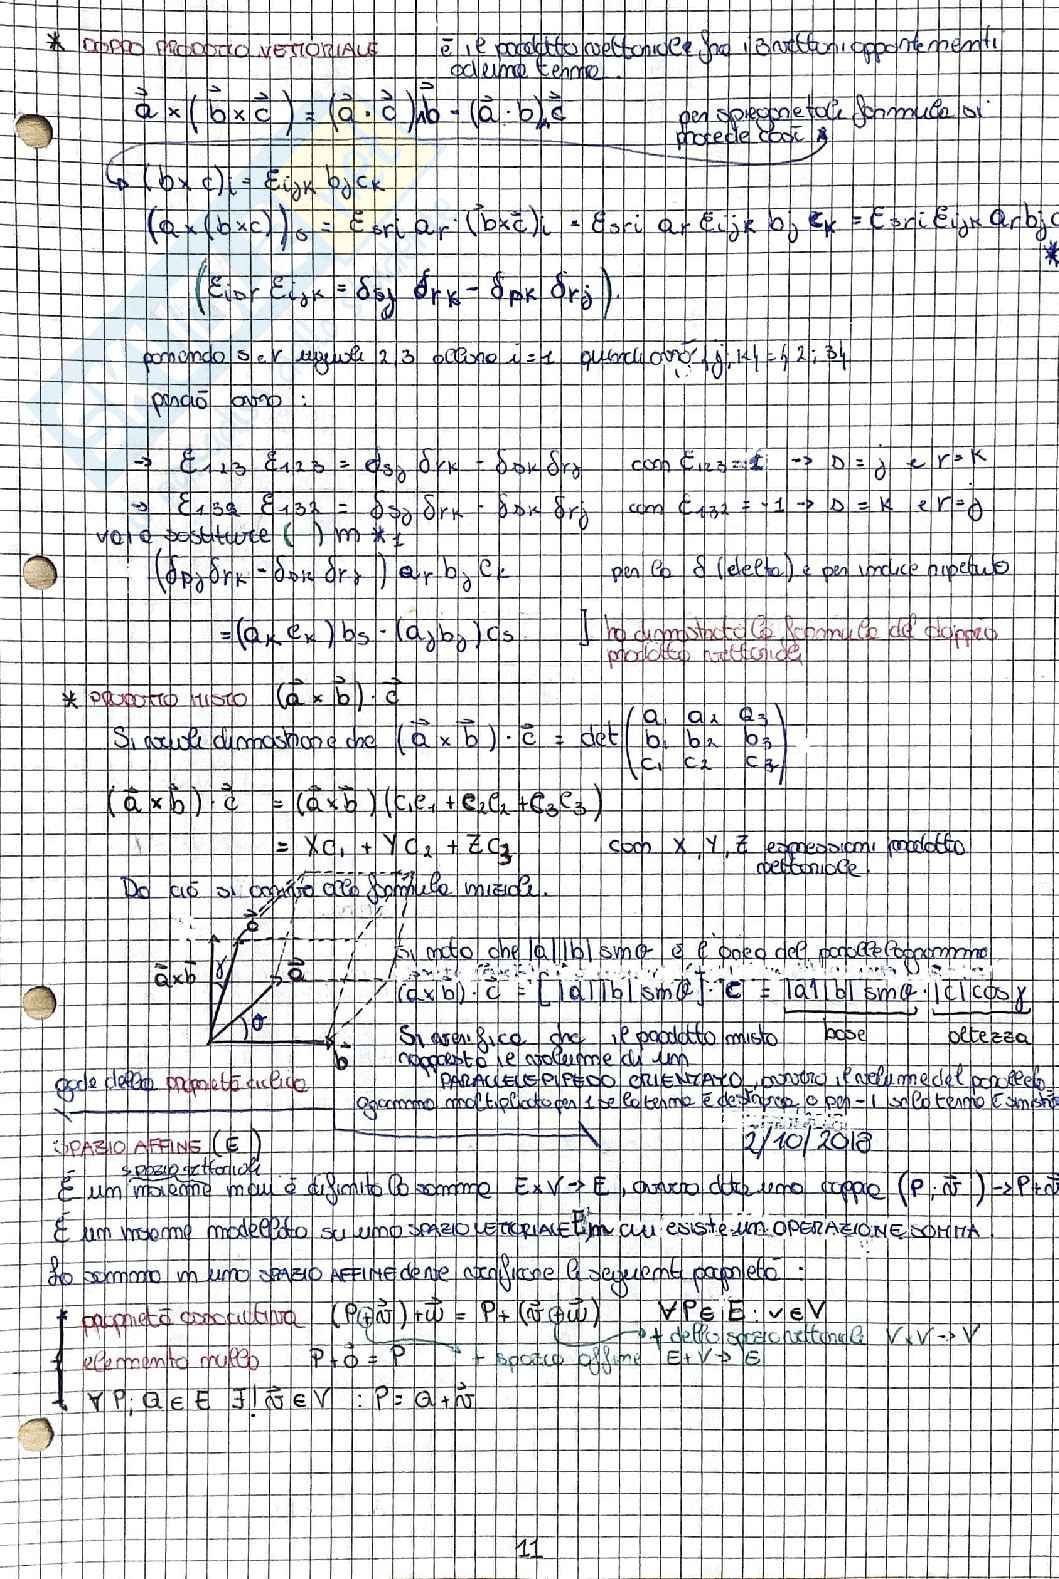 * DOPPIO PRODOTTO VETTORIALE è il prodotto vettoriale fra i 3 vettori appartenenti
ad uno terno.
a⃗ × (b⃗ × c⃗) = (a⃗ · c⃗) b⃗ - (a⃗ · b) c⃗ per spiegare tale formula si
procede così
↳ (b × c)i = εijk bj ck
(a × (b×c))s = εsri ar · (b⃗×c⃗)i = εsri ar εijk bj ck = εsri εijk ar bj c
*
(εisr εijk = δsj δrk - δsk δrj).
ponendo s e r uguali 2,3 allora i = 1 quindi avrò {j,k} = {2;3}
perciò avrò :
→ ε123 ε123 = δsj δrk - δsk δrj con ε123 = 1 → s = j e r = k
→ ε132 ε132 = δsj δrk - δsk δrj con ε132 = -1 → s = k e r = j
vado sostituire ( ) in *1
(δsj δrk - δsk δrj) ar bj ck per la δ (delta) e per indice ripetuto
= (ak ck) bs - (aj bj) cs ] ho dimostrato la formula del doppio
prodotto vettoriale
* PRODOTTO MISTO (a⃗ × b⃗) · c⃗
Si vuole dimostrare che (a⃗ × b⃗) · c⃗ = det ( a1 a2 a3
b1 b2 b3
c1 c2 c3 )
(a⃗ × b⃗) · c⃗ = (a⃗ × b⃗) (c1e1 + c2e2 + c3e3)
= Xc1 + Yc2 + Zc3 con X, Y, Z espressioni prodotto
vettoriale.
Da ciò si arriva alla formula iniziale.
c⃗
a⃗×b⃗ γ a⃗
θ
b⃗
Si noto che |a||b| sinθ è l'area del parallelogrammo
(a⃗×b⃗) · c⃗ = [|a⃗||b⃗| sinθ] · c = |a||b| sinθ · |c| cosγ
base altezza
Si verifica che il prodotto misto
rappresenta il volume di un
PARALLELEPIPEDO ORIENTATO, ovvero il volume del parallelo
gode della proprietà ciclica
ogrammo moltiplicato per 1 se la terna è destrorsa, o per -1 se la terna è sinistr
2/10/2018
SPAZIO AFFINE (E)
spazio vettoriale
È un insieme in cui è definita la somma E×V → E, ovvero data una coppia (P; v⃗) → P+v⃗
È un insieme modellato su uno SPAZIO VETTORIALE in cui esiste un OPERAZIONE SOMMA
La somma in uno SPAZIO AFFINE deve verificare le seguenti proprietà :
proprietà associativa (P+v⃗)+w⃗ = P+(v⃗+w⃗) ∀P∈E : v∈V
→ + dello spazio vettoriale V×V → V
elemento nullo P+0⃗ = P → + spazio affine E+V → E
∀ P; Q ∈ E ∃! v⃗ ∈ V : P = Q + v⃗
11